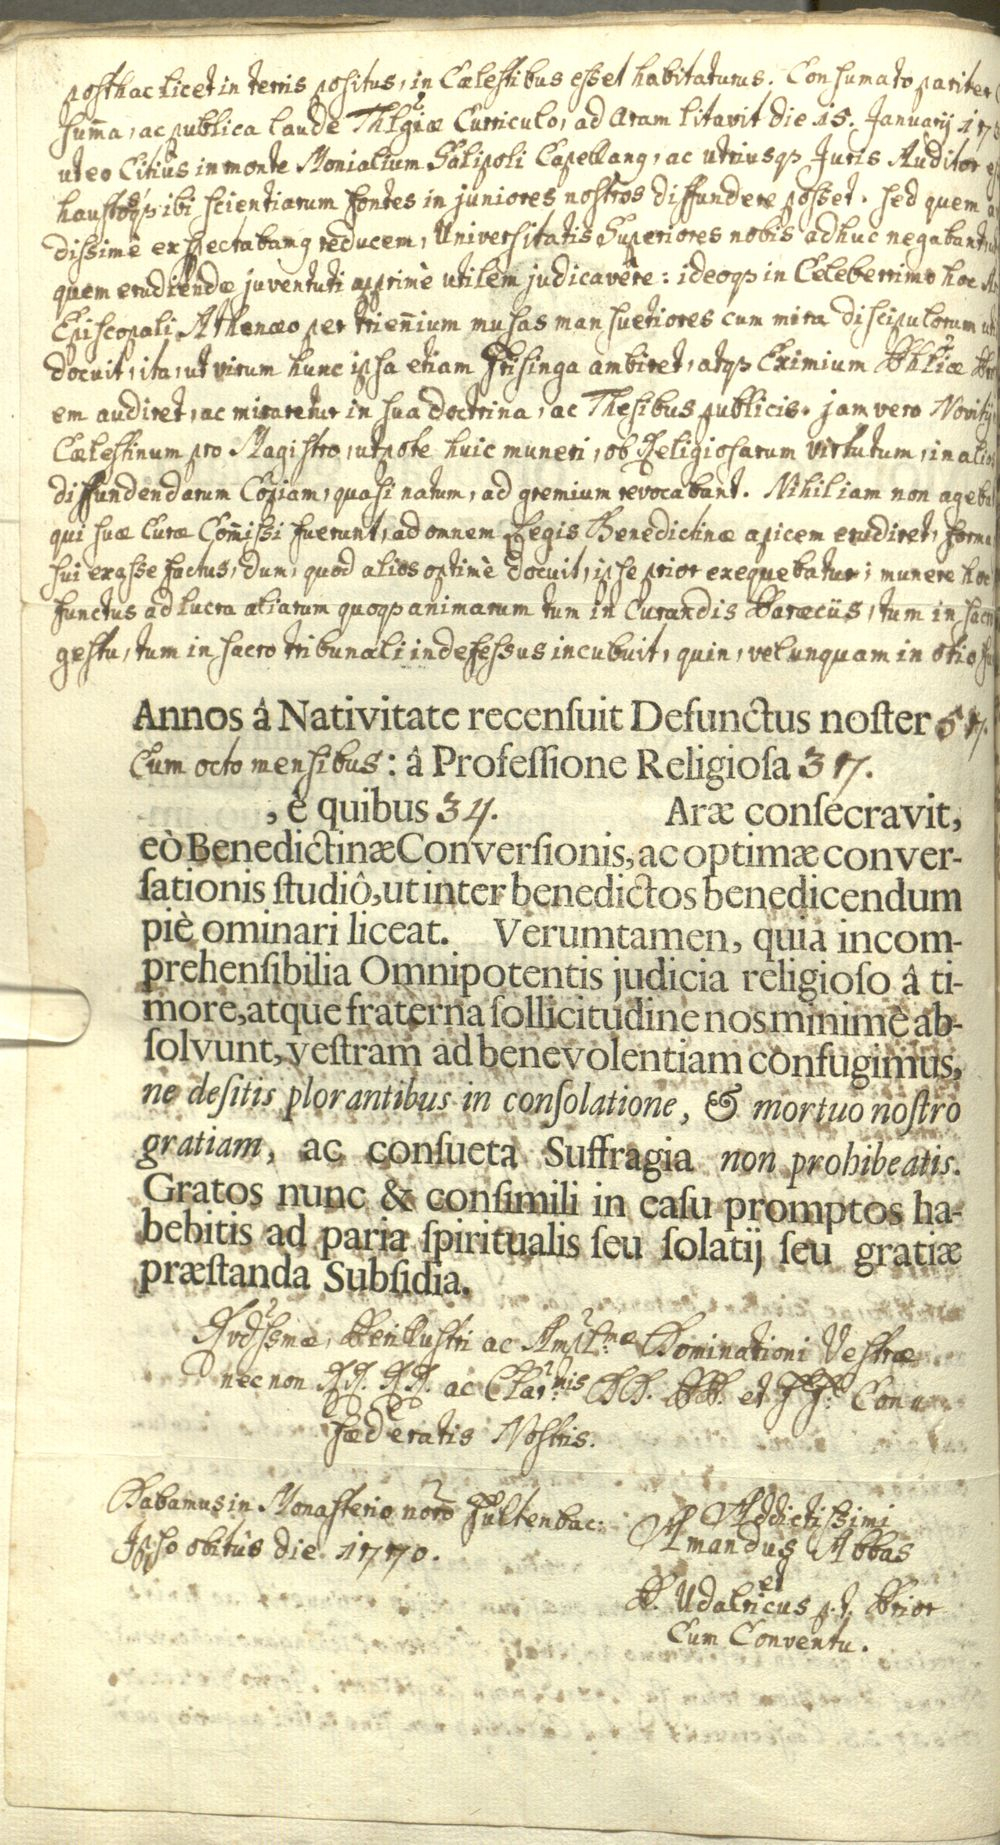 posthac licet in terris positus, in Cælestibus esset habitaturus. Consumato pariter
summa, ac publica laude Thlgiæ Curriculo, ad aram litavit die 15. Januarij 17
ut eo Citiùs in monte Monialium Salipoli Capellanq, ac utriusqp Juris Auditor
haustosqp ibi scientiarum fontes in juniores nostros diffundere posset. sed quem
dissimè expectabanq reducem, Universitatis Superiores nobis adhuc negabant
quem erudiendæ juventuti apprimè utilem judicavêre: ideoqp in Celeberrimo hoc
Episcopali Athenæo per trieñium musas mansuetiores cum mira discipulorum
docuit, ita, ut virum hunc ipsa etiam Frisinga ambiret, atqp Eximium Phliæ
em audiret, ac miraretur in sua doctrina, ac Thesibus publicis. jam vero Novitij
Cælestinum pro Magistro, utpote huic muneri, ob Religiosarum virtutum, in alios
diffundendarum Copiam, quasi natum, ad gremium revocabant. Nihil iam non ageba
qui suæ Curæ Com̃issi fuerunt, ad omnem Legis Benedictinæ apicem erudiret, forma
sui ex asse factus, dum, quod alios optimè docuit, ipse prior exequebatur; munere hoc
functus ad lucra aliarum quoqp animarum tum in Curandis Paræciis, tum in sacro
gestu, tum in sacro tribunali indefessus incubuit, quin, vel unquam in otio
Annos â Nativitate recenſuit Defunctus noſter 57.
Cum octo mensibus: â Profeſſione Religioſa 37.
, è quibus 34. Aræ conſecravit,
eò Benedictinæ Converſionis, ac optimæ conver-
ſationis ſtudiô, ut inter benedictos benedicendum
piè ominari liceat. Verumtamen, quia incom-
prehenſibilia Omnipotentis judicia religioſo â ti-
more, atque fraterna ſollicitudine nos minimè ab-
ſolvunt, veſtram ad benevolentiam confugimus,
ne deſitis plorantibus in conſolatione, & mortuo noſtro
gratiam, ac conſueta Suffragia non prohibeatis.
Gratos nunc & conſimili in caſu promptos ha-
bebitis ad paria ſpiritualis ſeu ſolatij ſeu gratiæ
præſtanda Subſidia.
Rvdssmæ, Perillustri ac Ampl:mæ Dominationi Vestræ
nec non RR. RR. ac Clar:mis DD. PP. et FF: Con
fæderatis Nostris.
Dabamus in Monasterio nôro Fultenbac:
Ipso obitûs die 1770.
Addictissimi
Amandus Abbas
et
P. Udalricus p.t. Prior
Cum Conventu.